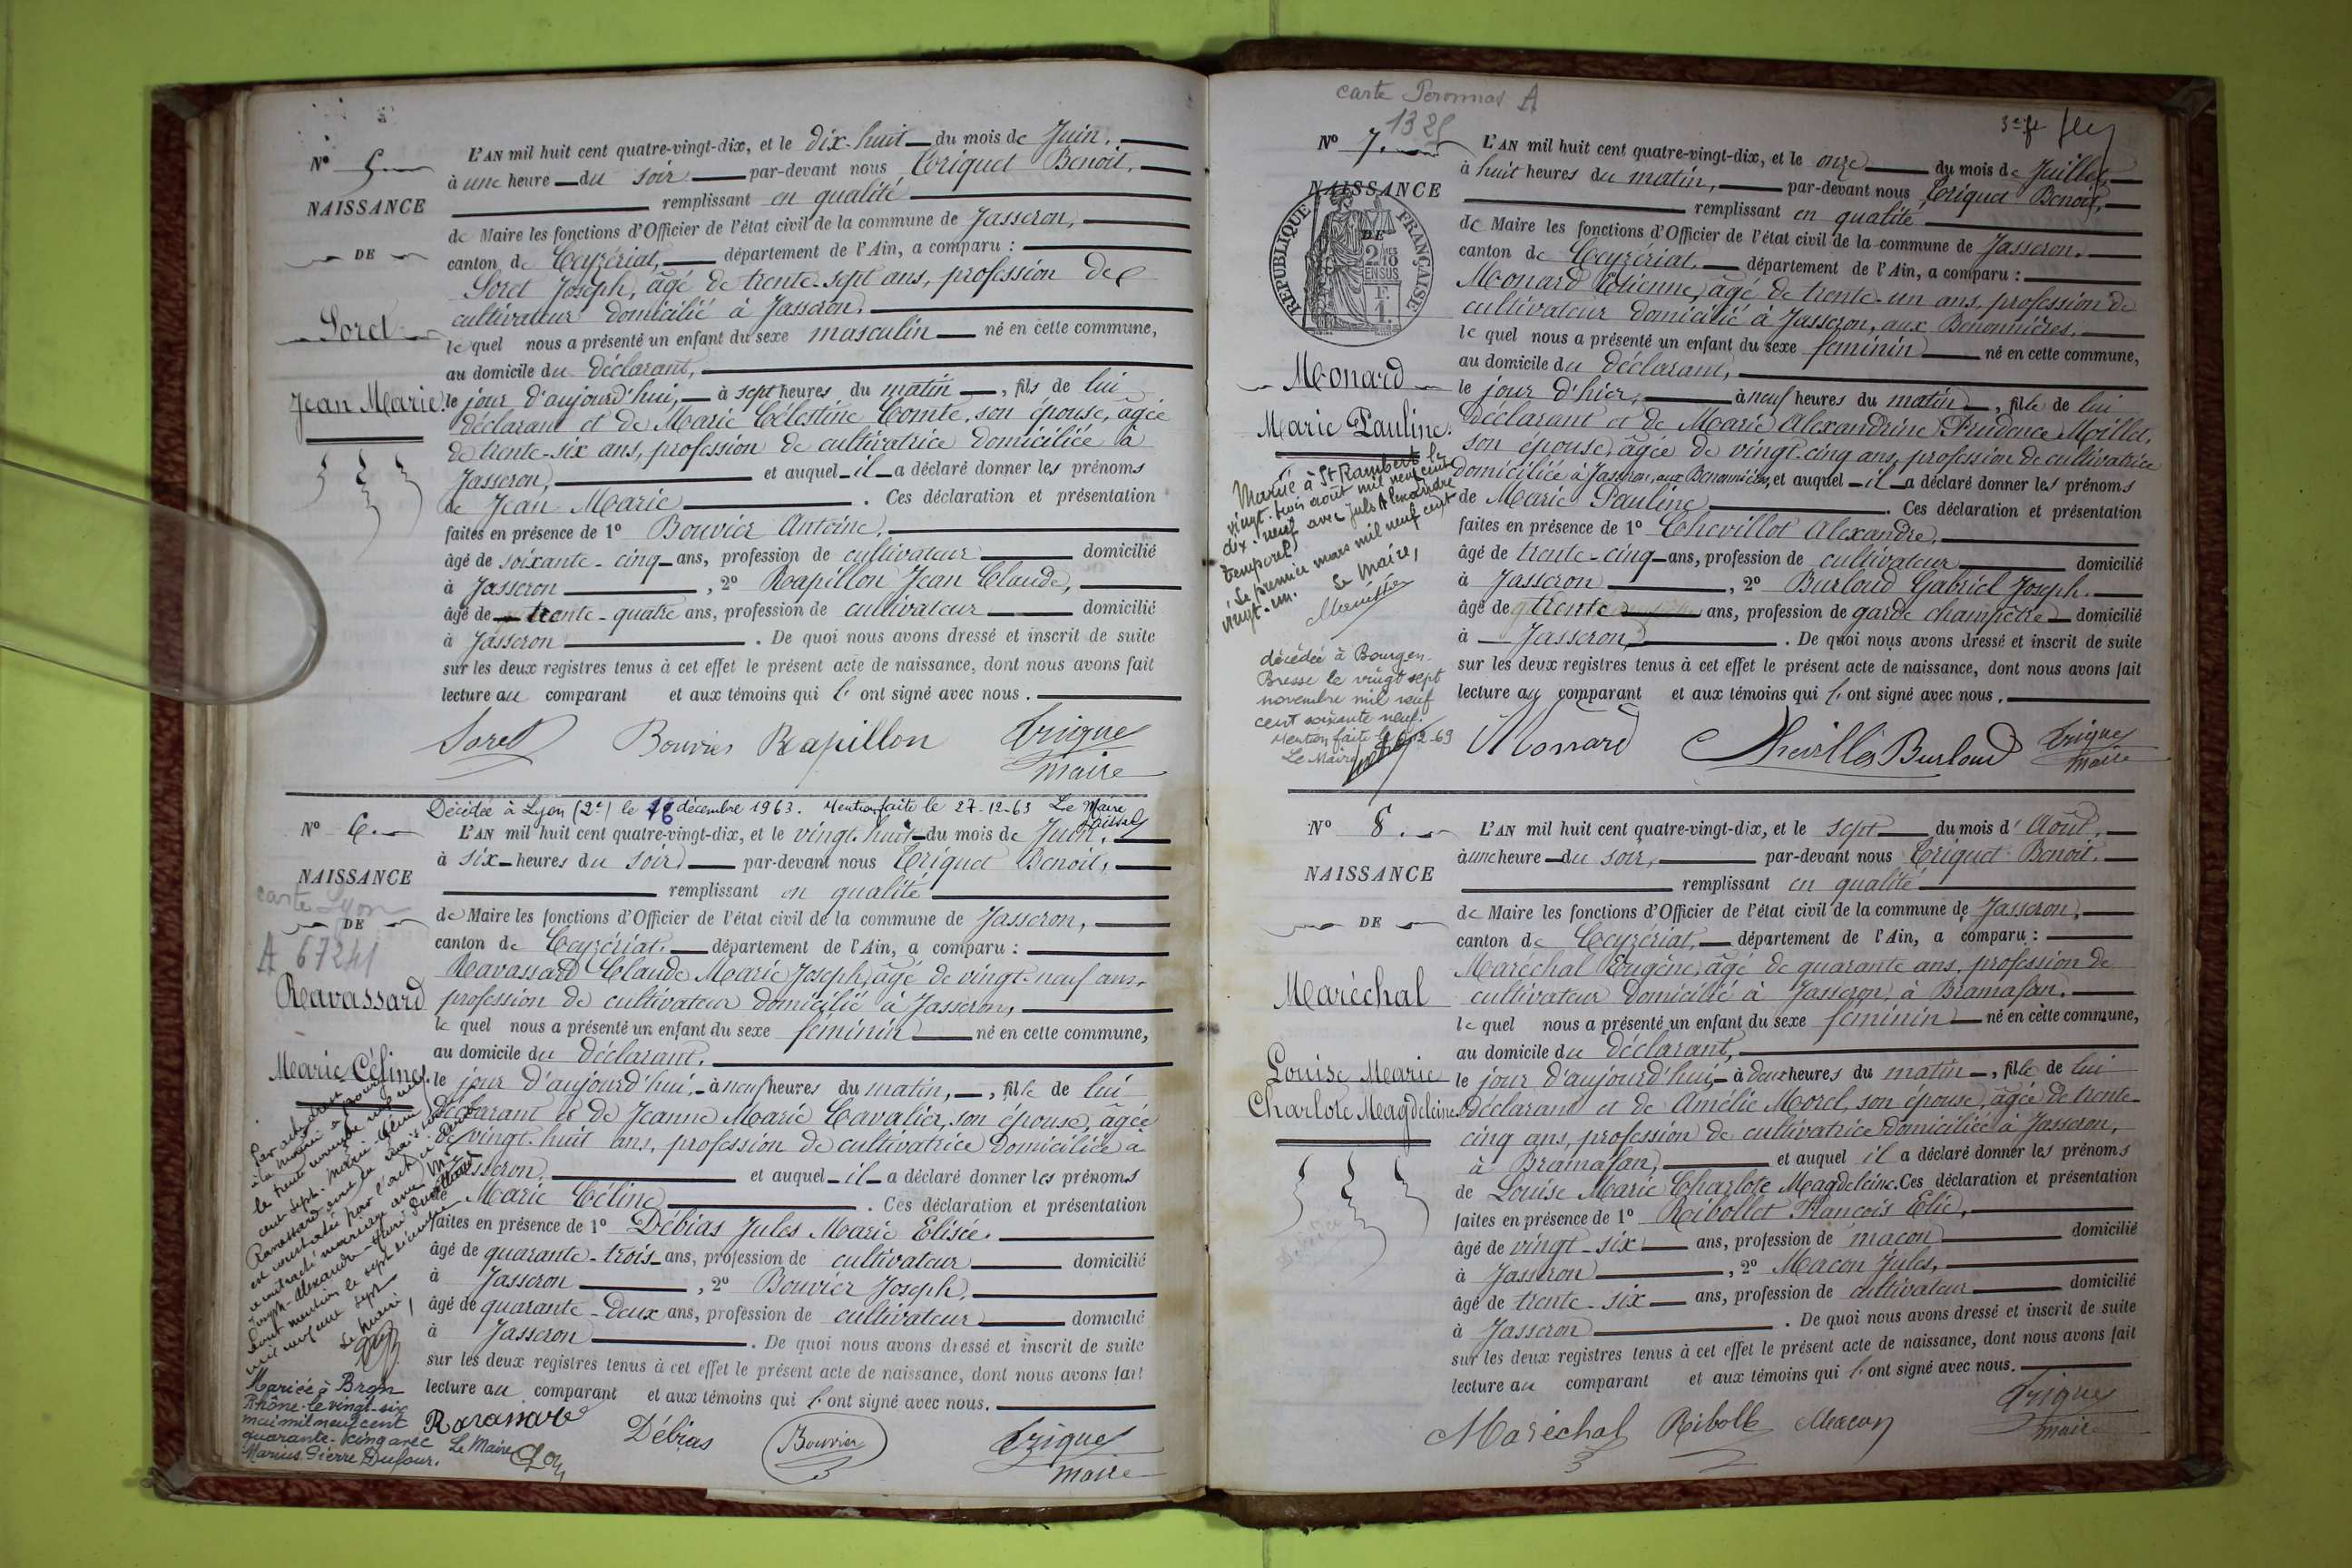 N° 5.
NAISSANCE
DE
Soret
Jean Marie.
L'AN mil huit cent quatre-vingt-dix, et le dix-huit du mois de Juin,
à une heure du soir par-devant nous Triquet Benoit,
remplissant en qualité
de Maire les fonctions d'Officier de l'état civil de la commune de Jasseron,
canton de Ceyzériat, département de l'Ain, a comparu :
Soret Joseph, âgé de trente-sept ans, profession de
cultivateur domicilié à Jasseron,
le quel nous a présenté un enfant du sexe masculin né en cette commune,
au domicile du déclarant,
le jour d'aujourd'hui, à sept heures du matin, fils de lui
déclarant et de Marie Célestine Comte, son épouse, âgée
de trente-six ans, profession de cultivatrice domiciliée à
Jasseron, et auquel il a déclaré donner les prénoms
de Jean Marie. Ces déclaration et présentation
faites en présence de 1° Bouvier Antoine,
âgé de soixante-cinq ans, profession de cultivateur domicilié
à Jasseron, 2° Rapillon Jean Claude,
âgé de trente-quatre ans, profession de cultivateur domicilié
à Jasseron. De quoi nous avons dressé et inscrit de suite
sur les deux registres tenus à cet effet le présent acte de naissance, dont nous avons fait
lecture au comparant et aux témoins qui l'ont signé avec nous.
Soret Bouvier Rapillon Triquet
maire
Décédée à Lyon (2e) le 16 décembre 1963. Mention faite le 27-12-63 Le Maire
N° 6.
NAISSANCE
carte Lyon
DE
A 67241
Ravassard
Marie Céline.
L'AN mil huit cent quatre-vingt-dix, et le vingt-huit du mois de Juin,
à six heures du soir par-devant nous Triquet Benoit,
remplissant en qualité
de Maire les fonctions d'Officier de l'état civil de la commune de Jasseron,
canton de Ceyzériat, département de l'Ain, a comparu :
Ravassard Claude Marie Joseph, âgé de vingt-neuf ans,
profession de cultivateur domicilié à Jasseron,
le quel nous a présenté un enfant du sexe féminin né en cette commune,
au domicile du déclarant,
le jour d'aujourd'hui, à neuf heures du matin, fille de lui
déclarant et de Jeanne Marie Cavalier, son épouse, âgée
de vingt-huit ans, profession de cultivatrice domiciliée à
Jasseron, et auquel il a déclaré donner les prénoms
de Marie Céline. Ces déclaration et présentation
faites en présence de 1° Débias Jules Marie Elisée,
âgé de quarante-trois ans, profession de cultivateur domicilié
à Jasseron, 2° Bouvier Joseph,
âgé de quarante-deux ans, profession de cultivateur domicilié
à Jasseron. De quoi nous avons dressé et inscrit de suite
sur les deux registres tenus à cet effet le présent acte de naissance, dont nous avons fait
lecture au comparant et aux témoins qui l'ont signé avec nous.
Ravassard Débias Bouvier Triquet
maire
Mariée à Bron
Rhône le vingt-six
mai mil neuf cent
quarante-cinq avec
Marius Pierre Dufour. Le Maire
carte Peronnas A
1325
N° 7.
NAISSANCE
DE
REPUBLIQUE FRANÇAISE
Monard
Marie Pauline.
Marié à St Rambert le
vingt-trois août mil neuf cent
dix-neuf avec Jules Alexandre
Temporel
Le premier mars mil neuf cent
vingt-un. Le Maire,
décédée à Bourg en
Bresse le vingt sept
novembre mil neuf
cent soixante neuf.
Mention faite le -12-69
Le Maire
L'AN mil huit cent quatre-vingt-dix, et le onze du mois de Juillet,
à huit heures du matin, par-devant nous Triquet Benoit,
remplissant en qualité
de Maire les fonctions d'Officier de l'état civil de la commune de Jasseron,
canton de Ceyzériat, département de l'Ain, a comparu :
Monard Etienne, âgé de trente-un ans, profession de
cultivateur domicilié à Jasseron, aux Benonnières,
le quel nous a présenté un enfant du sexe féminin né en cette commune,
au domicile du déclarant,
le jour d'hier, à neuf heures du matin, fille de lui
déclarant et de Marie Alexandrine Prudence Moillet,
son épouse, âgée de vingt-cinq ans, profession de cultivatrice
domiciliée à Jasseron, aux Benonnières, et auquel il a déclaré donner les prénoms
de Marie Pauline. Ces déclaration et présentation
faites en présence de 1° Chevillot Alexandre,
âgé de trente-cinq ans, profession de cultivateur domicilié
à Jasseron, 2° Burloud Gabriel Joseph,
âgé de trente ans, profession de garde champêtre domicilié
à Jasseron. De quoi nous avons dressé et inscrit de suite
sur les deux registres tenus à cet effet le présent acte de naissance, dont nous avons fait
lecture au comparant et aux témoins qui l'ont signé avec nous.
Monard Chevillot Burloud Triquet
maire
N° 8.
NAISSANCE
DE
Maréchal
Louise Marie
Charlote Magdeleine.
L'AN mil huit cent quatre-vingt-dix, et le sept du mois d'Août,
à une heure du soir, par-devant nous Triquet Benoit,
remplissant en qualité
de Maire les fonctions d'Officier de l'état civil de la commune de Jasseron,
canton de Ceyzériat, département de l'Ain, a comparu :
Maréchal Eugène, âgé de quarante ans, profession de
cultivateur domicilié à Jasseron, à Bramafan,
le quel nous a présenté un enfant du sexe féminin né en cette commune,
au domicile du déclarant,
le jour d'aujourd'hui, à deux heures du matin, fille de lui
déclarant et de Amélie Morel, son épouse, âgée de trente-
cinq ans, profession de cultivatrice domiciliée à Jasseron,
à Bramafan, et auquel il a déclaré donner les prénoms
de Louise Marie Charlote Magdeleine. Ces déclaration et présentation
faites en présence de 1° Ribollet François Elie,
âgé de vingt-six ans, profession de maçon domicilié
à Jasseron, 2° Macon Jules,
âgé de trente-six ans, profession de cultivateur domicilié
à Jasseron. De quoi nous avons dressé et inscrit de suite
sur les deux registres tenus à cet effet le présent acte de naissance, dont nous avons fait
lecture au comparant et aux témoins qui l'ont signé avec nous.
Maréchal Ribollet Macon Triquet
maire